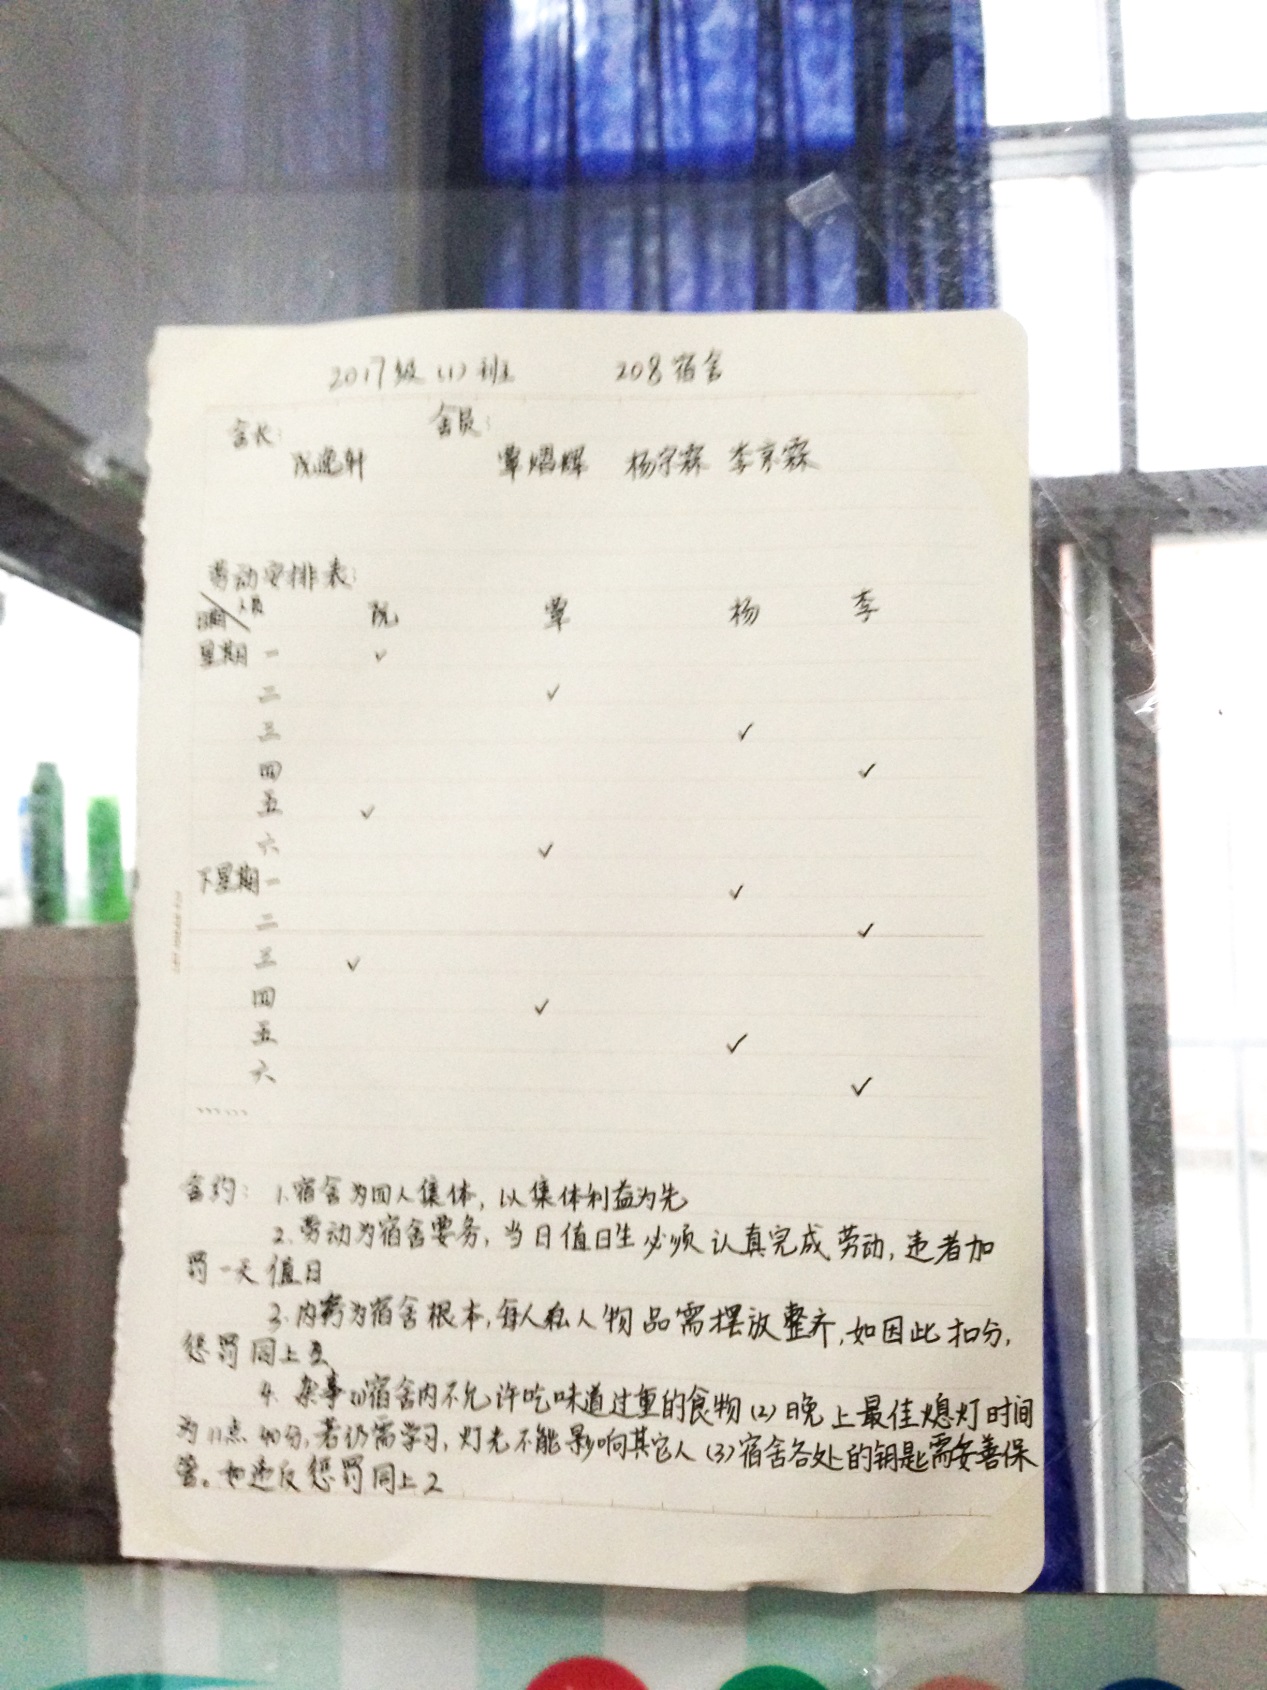 2017级（1）班 208宿舍
舍长： 舍员：
阮逸轩 覃熠辉 杨宗霖 李京霖
劳动安排表：
人员
阮 覃 杨 李
星期 一 ✓
二 ✓
三 ✓
四 ✓
五 ✓
六 ✓
下星期 一 ✓
二 ✓
三 ✓
四 ✓
五 ✓
六 ✓
……
舍约： 1.宿舍为四人集体，以集体利益为先
2.劳动为宿舍要务，当日值日生必须认真完成劳动，违者加
罚一天值日
3.内务为宿舍根本，每人私人物品需摆放整齐，如因此扣分，
惩罚同上2
4.杂事(1)宿舍内不允许吃味道过重的食物(2)晚上最佳熄灯时间
为11点40分，若仍需学习，灯光不能影响其它人(3)宿舍各处的钥匙需妥善保
管。如违反惩罚同上2